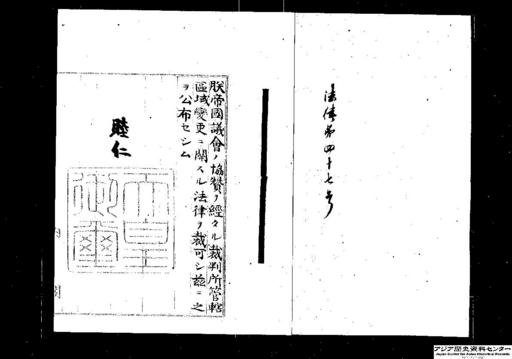 法律第四十七号
朕帝國議會ノ協賛ヲ經タル裁判所管轄
區域變更ニ關スル法律ヲ裁可シ茲ニ之
ヲ公布セシム
睦仁
天皇
御璽
内閣
アジア歴史資料センター
Japan Center for Asian Historical Records